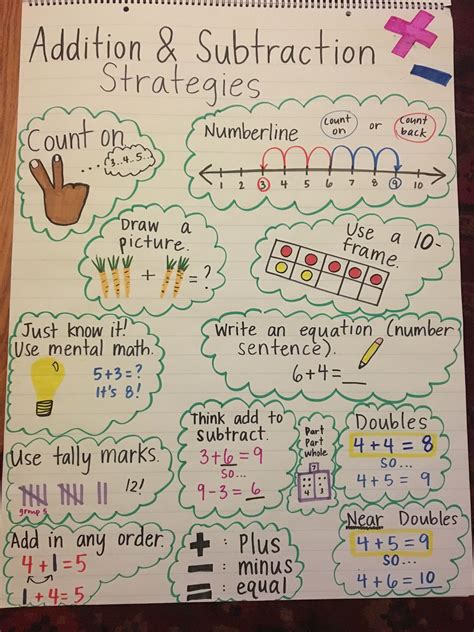 Addition & Subtraction
Strategies
Count on
...3..4..5...
Numberline
Count on
or
Count back
1 2 3 4 5 6 7 8 9 10
Draw a
picture.
+ = ?
Use a 10-
frame.
Just know it!
Use mental math.
5+3=?
It's 8!
Write an equation (number
sentence).
6+4=__
Use tally marks.
12!
group 5
Think add to
subtract.
3+6=9
SO...
9-3=6
Part
Part
Whole
7
Doubles
4+4=8
SO...
4+5=9
Add in any order.
4+1=5
1+4=5
+ : Plus
- : minus
= : equal
Near Doubles
4+5=9
SO...
4+6=10